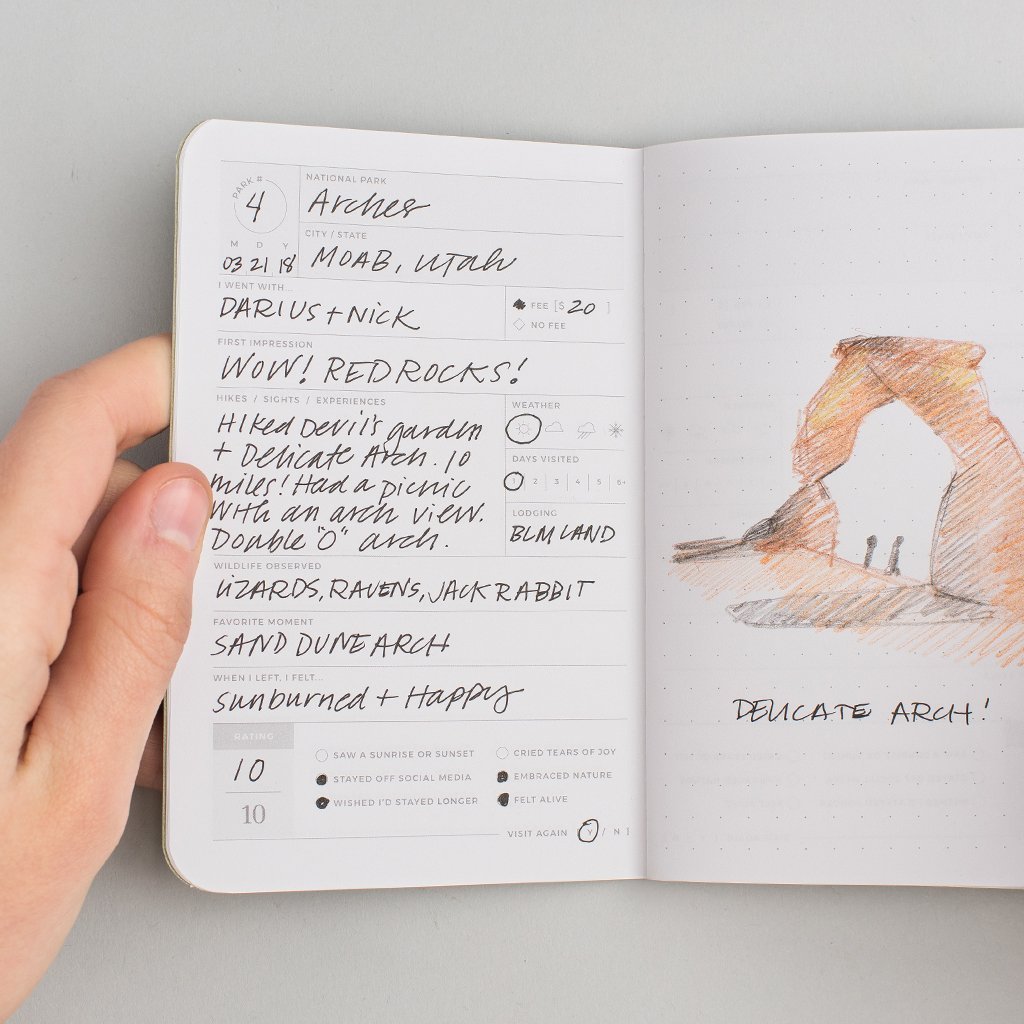 PARK #
4
NATIONAL PARK
Arches
CITY / STATE
MOAB, UTah
M D Y
03 21 18
I WENT WITH...
DARIUS + NICK
FEE [$ 20 ]
NO FEE
FIRST IMPRESSION
WOW! RED ROCKS!
HIKES / SIGHTS / EXPERIENCES
Hiked Devil's garden
+ Delicate Arch. 10
miles! Had a picnic
with an arch view.
Double "O" arch.
WEATHER
DAYS VISITED
1 2 3 4 5 6+
LODGING
BLM LAND
WILDLIFE OBSERVED
LIZARDS, RAVENS, JACK RABBIT
FAVORITE MOMENT
SAND DUNE ARCH
WHEN I LEFT, I FELT...
Sunburned + Happy
RATING
10
10
SAW A SUNRISE OR SUNSET
CRIED TEARS OF JOY
STAYED OFF SOCIAL MEDIA
EMBRACED NATURE
WISHED I'D STAYED LONGER
FELT ALIVE
VISIT AGAIN [ Y / N ]
DELICATE ARCH!